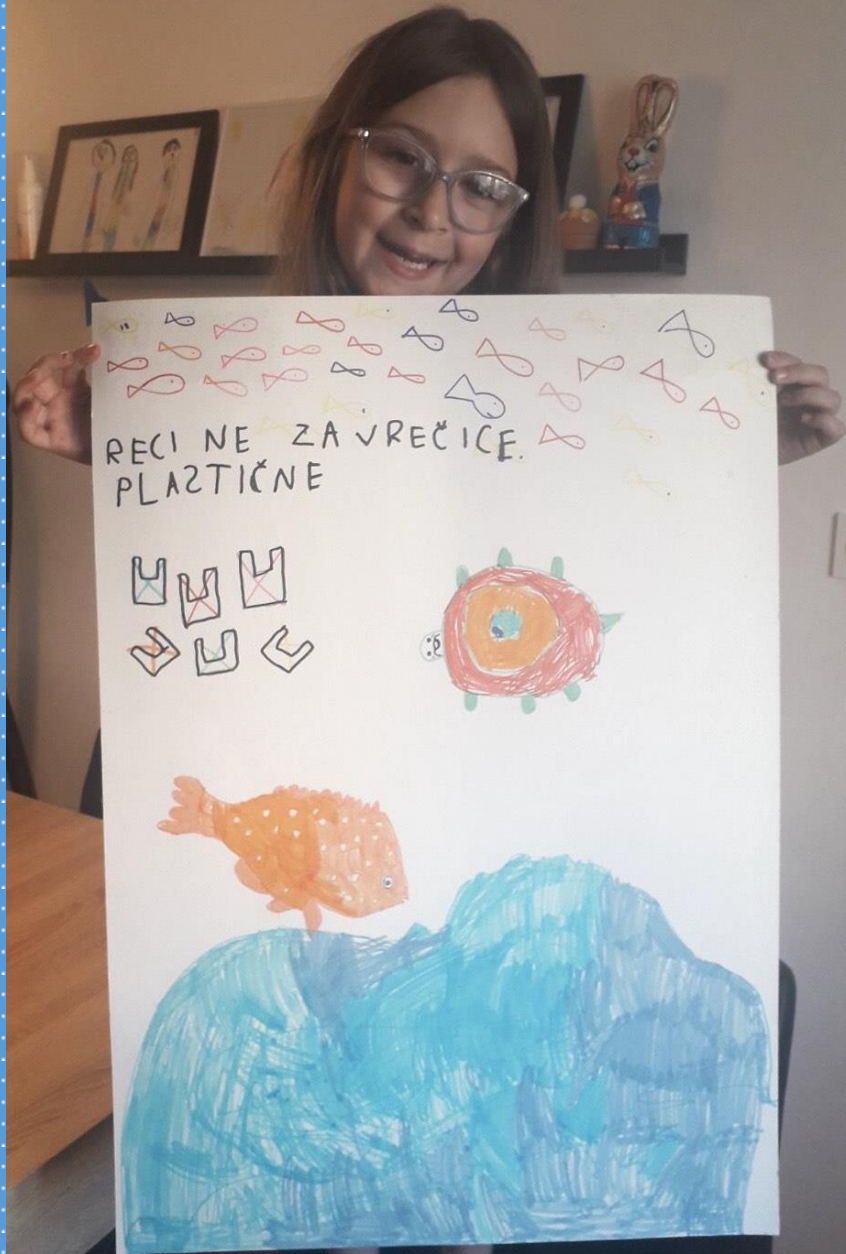 RECI NE ZA VREČICE.
PLASTIČNE